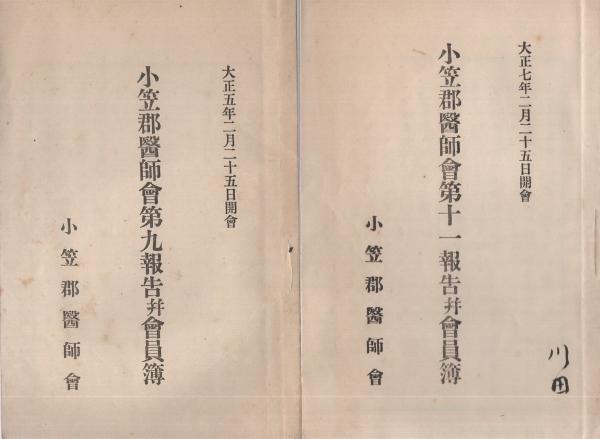 大正七年二月二十五日開會
小笠郡醫師會第十一報告幷會員簿
小笠郡醫師會
川田
大正五年二月二十五日開會
小笠郡醫師會第九報告幷會員簿
小笠郡醫師會